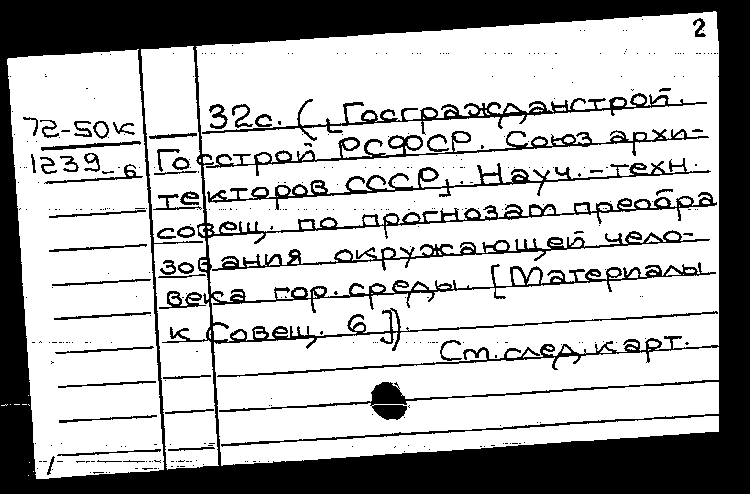 2
72-50к
1239-6
32с. (⌊Госгражданстрой.
Госстрой РСФСР. Союз архи-
текторов СССР⌋. Науч.-техн.
совещ. по прогнозам преобра
зования окружающей чело-
века гор. среды. [Материалы
к Совещ. 6]).
См. след. карт.